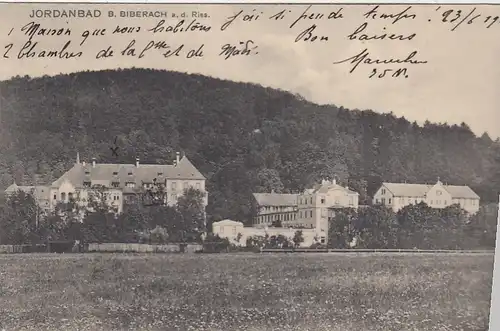 JORDANBAD B. BIBERACH a. d. Riss.
j'ai si peu de temps! 23/6 19
1 Maison que nous habitons
Bon baisers
2 Chambres de la et de